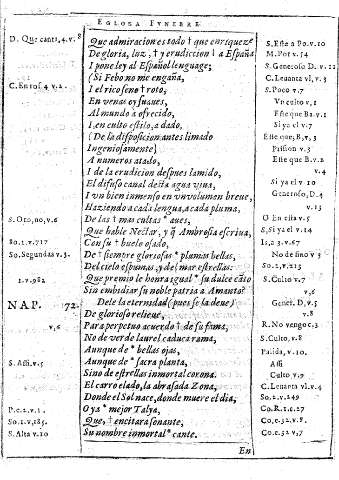 EGLOGA FVNEBRE
D. Que canta, 4.v.8 Que admiracion es todo † que enrriqueze S. Este a Po.v.10
De gloria, luz, † y erudicion ↓ a España M. Pot v.54
I pone ley al Español lenguage; S. Generoso D. v.11
(Si Febo no me engaña, C. Leuanta vl, v.3
C. En tos 4 v.2. I el rico seno † roto, S. Poco v.7
En venas oy suaues, Vn culto v,1
Al mundo a ofrecido, Este que B a 2.v.1
I, en culto estilo, a dado, Si ya el v.7
(De la disposicion antes limado Este que, B, v, 3
Ingeniosamente) Prision v.3
A numeros atado, Este que B.v.2
I de la erudicion despues lamido, v.4
El difuso canal desta agua viua, Si ya el v 10
I vn bien inmenso en vn volumen breue, Generoso, D.4
Haziendo a cada lengua, a cada pluma, v.15
S. Oro, no, v.6 De las † mas cultas * aues, O En esta v.5
Que hable Nectar, y q̃ Ambrosia escriua, S, Si ya el v.14
So.1.v.717 Con su † buelo osado, Is, 2 3.v.67
So. Segundas v.5. De † siempre gloriosas * plumas bellas, No de fino v 5
Del cielo espumas, y de † mar estrellas: So.2, v.215
1.v.982 Que premio le honra igual * su dulce cāto S. Culto v.7
Sin embidiar su noble patria a Amanto? v,6
NAP. 72. Dele la eternidad (pues se la deue) Gener. D, v.5
De glorioso relieue, v.8
v,6 Para perpetuo acuerdo † de su fama, R. No vengo c.3
No de verde laurel caduca rama, S. Culto, v.8
Aunque de * bellas ojas, Palida, v.10.
S. Assi. v.5 Aunque de * sacra planta, Assi
Sino de estrellas inmortal corona. Culto v.9
El carro elado, la abrasada Zona, C. Leuanta vl.v.4
Donde el Sol nace, donde muere el dia, So.2.v.249
P.e 2.v.1. Oya * mejor Talya, Co.R.1.e.27
S. 1.v,185. Que, † en citara sonante, Co,e.32.v.8.
S. Alta v.10 Su nombre inmortal * cante. Co,e.32 v,7
En